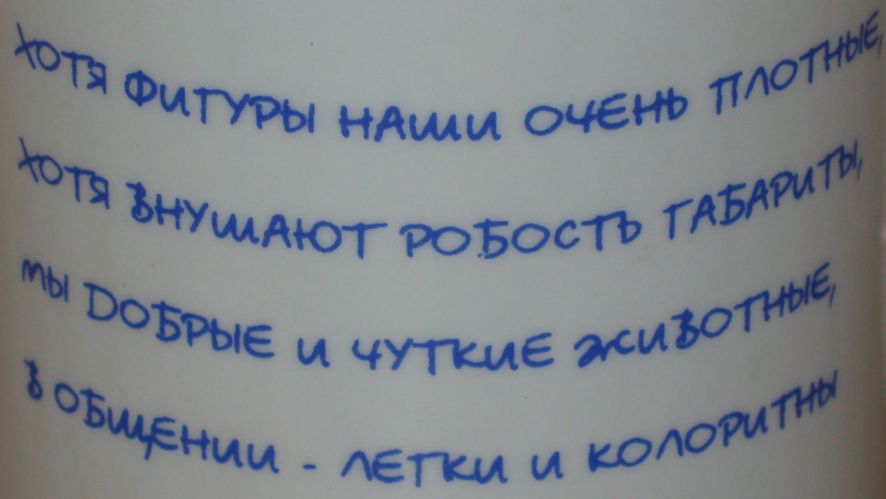 ХОТЯ ФИГУРЫ НАШИ ОЧЕНЬ ПЛОТНЫЕ,
ХОТЯ ВНУШАЮТ РОБОСТЬ ГАБАРИТЫ,
МЫ ДОБРЫЕ И ЧУТКИЕ ЖИВОТНЫЕ,
В ОБЩЕНИИ - ЛЕГКИ И КОЛОРИТНЫ